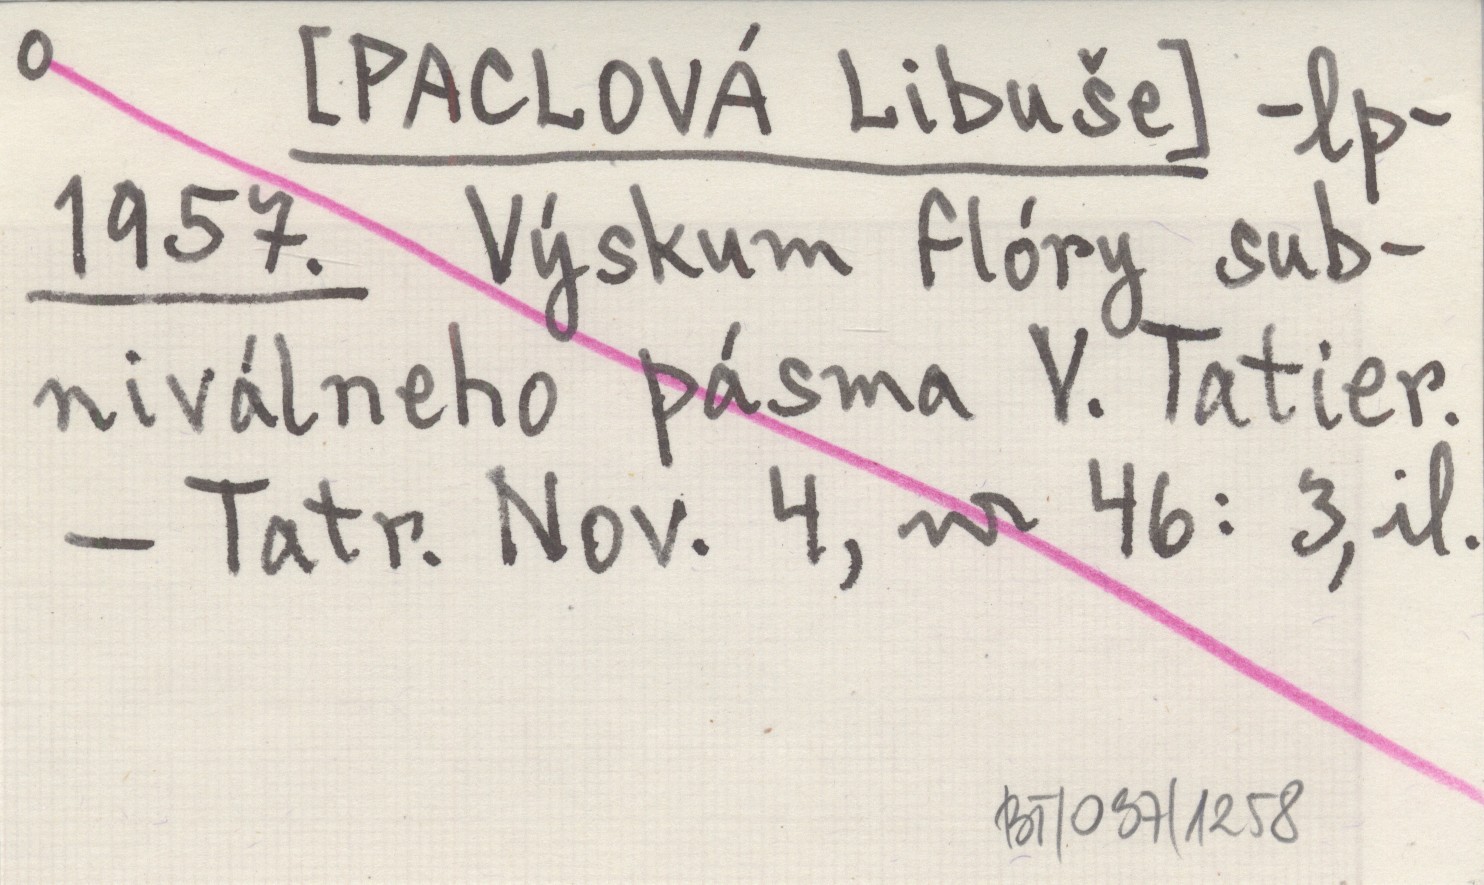 o [PACLOVÁ Libuše] -lp-
1957. Výskum flóry sub-
niválneho pásma V. Tatier.
— Tatr. Nov. 4, nr 46: 3, il.
BT/037/1258